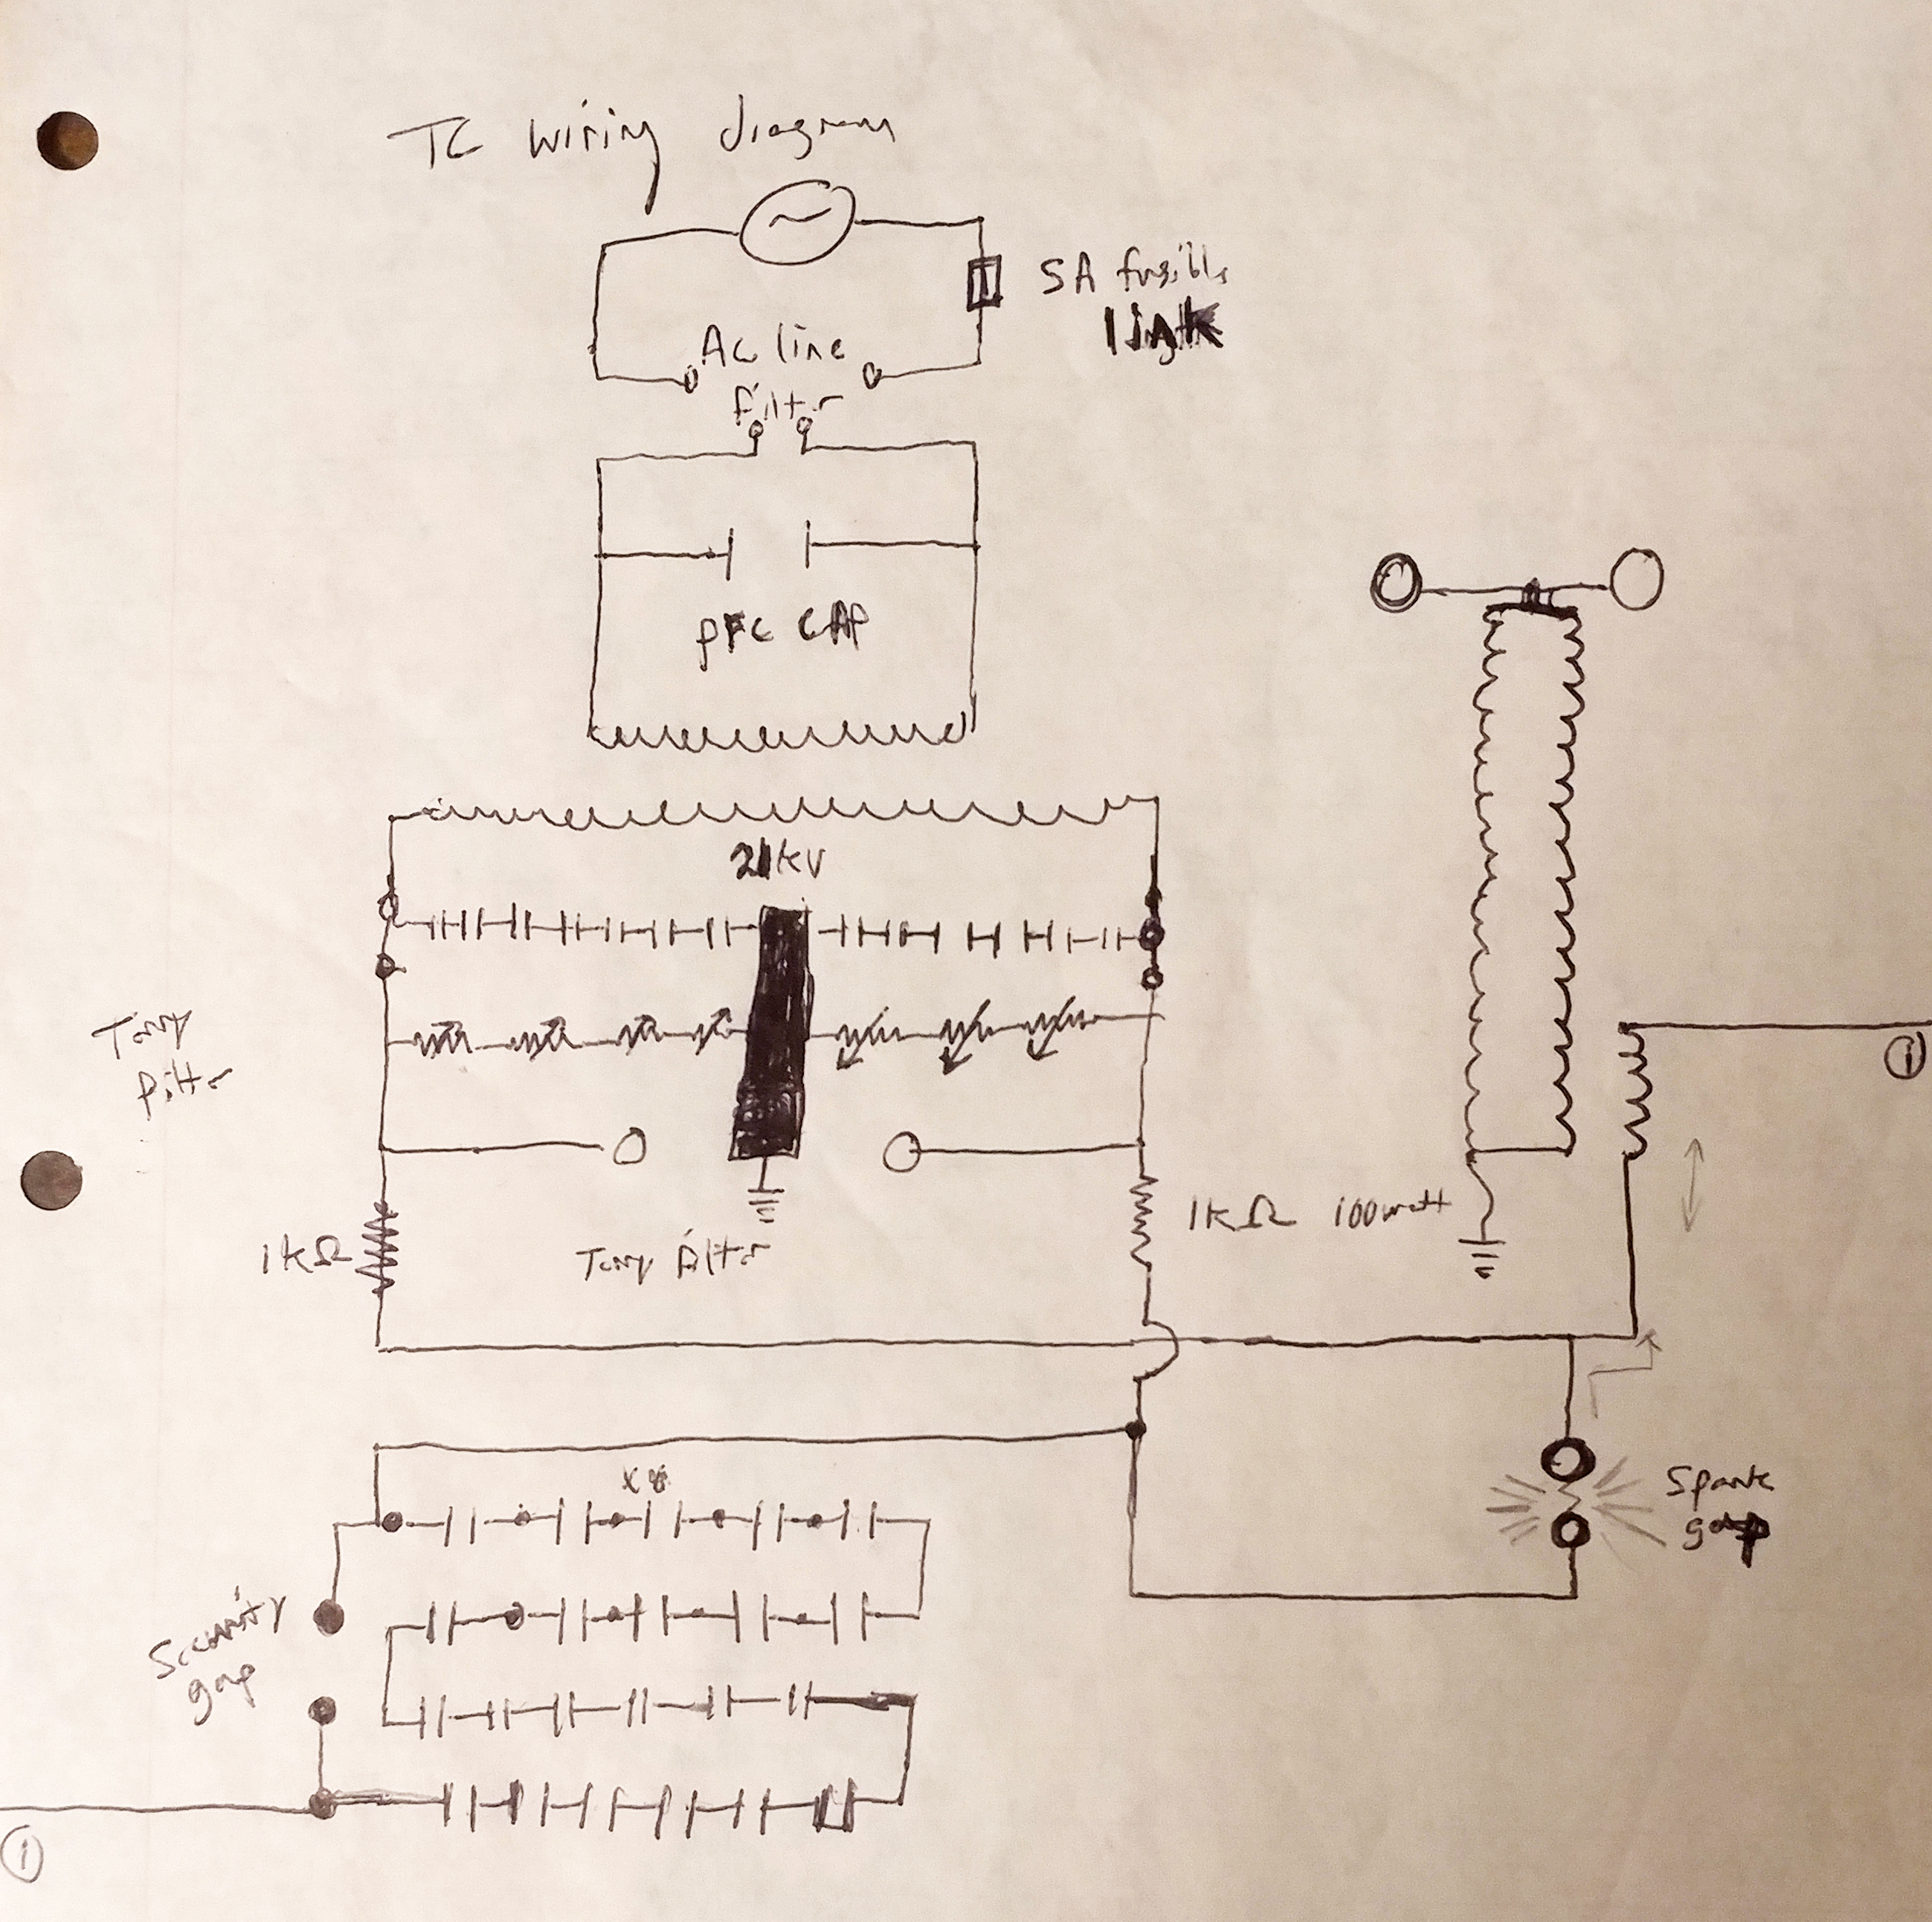 TC wiring diagram
5A fusible
link
AC line
filter
PFC CAP
21kV
Terry
filter
1kΩ
Terry filter
1kΩ 100watt
1
x8
Spark
gap
Security
gap
1